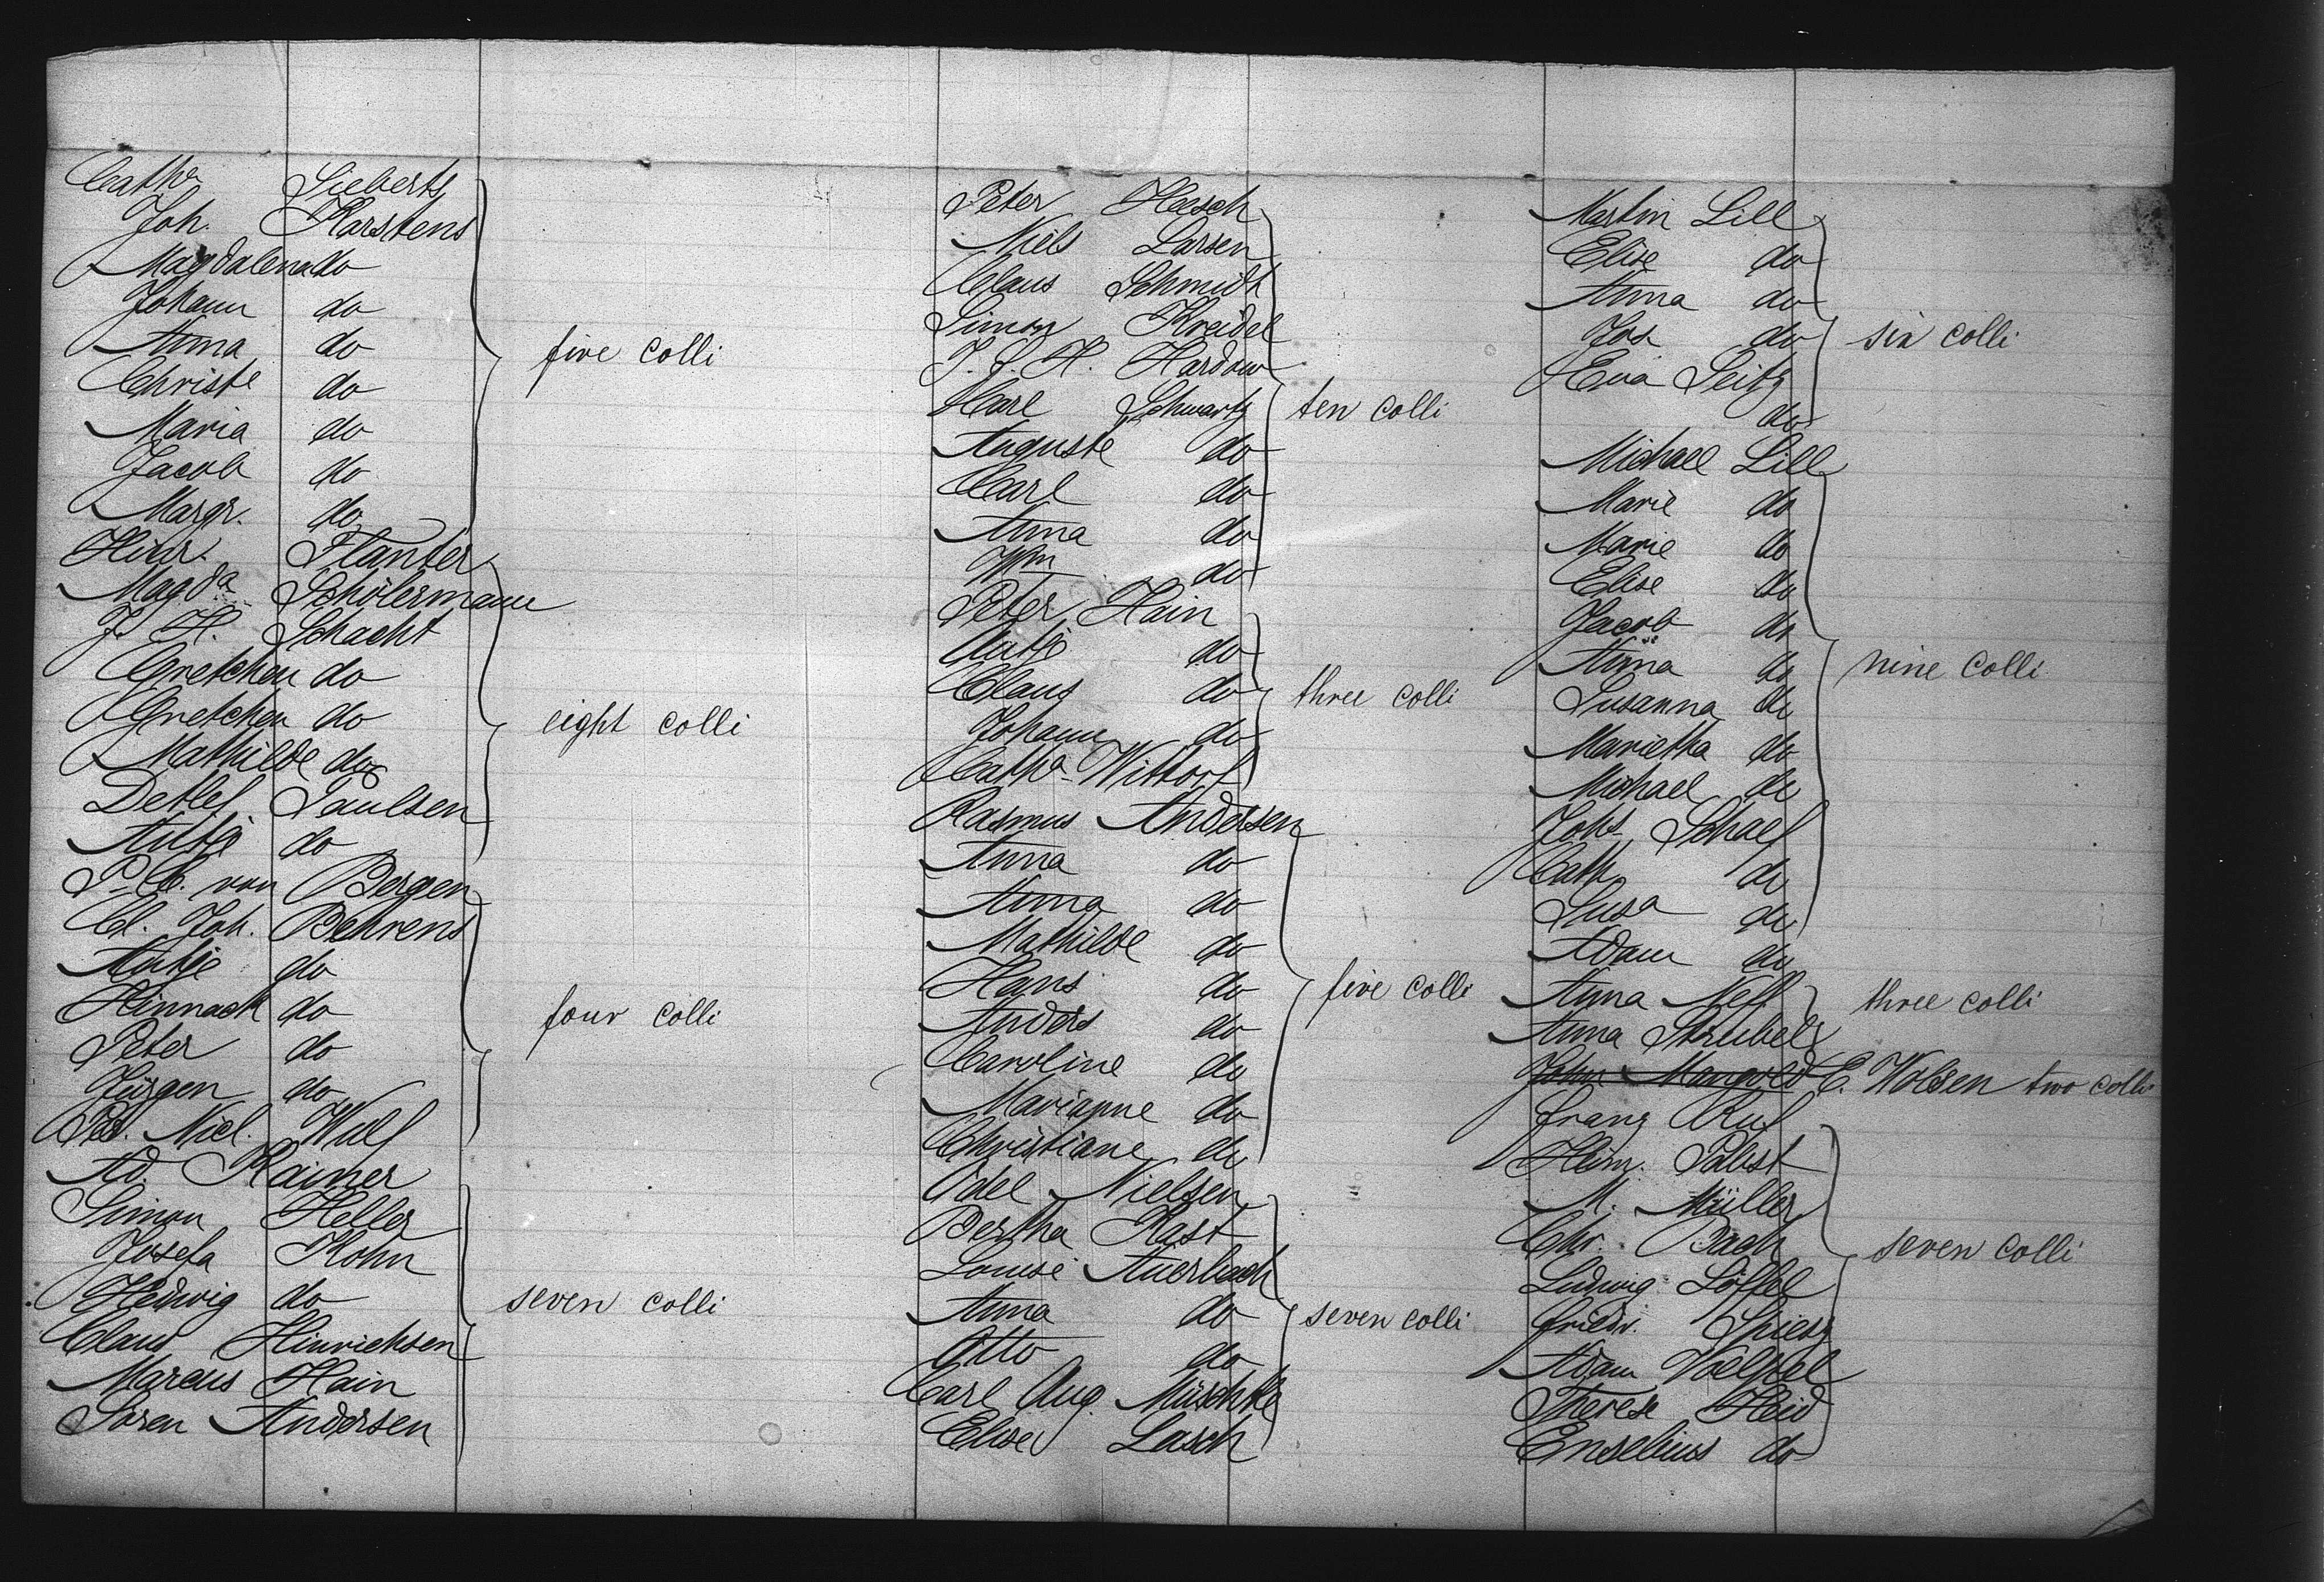 Catha Sieberts
Joh. Karstens
Magdalena do
Johann do
Anna do
five colli
Christe do
Maria do
Jacob do
Margr. do
Hinr. Flanter
Magda Schölermann
J. H. Schacht
Gretchen do
Gretchen do
eight colli
Mathilde do
Detlef Paulsen
Antje do
P. C. von Bergen
Cl. Joh. Behrens
Antje do
Hinnach do
four colli
Peter do
Jürgen do
Pet. Nicl. Wulf
Ad. Rainer
Simon Heller
Josefa Kohn
Hedwig do
seven colli
Claus Hinrichsen
Marcus Hain
Soren Andersen
Peter Hesch
Niels Larsen
Claus Schmidt
Simon Kreidel
J. J. H. Hardow
Carl Schwartz
ten colli
Auguste do
Carl do
Anna do
Wm do
Peter Hain
Antje do
Claus do
three colli
Johann do
Catha Wittorf
Rasmus Andersen
Anna do
Anna do
Mathilde do
Hans do
five colli
Anders do
Caroline do
Marianne do
Christiane do
Odel Nielsen
Bertha Kast
Louise Auerbach
Anna do
seven colli
Otto do
Carl Aug. Müschke
Elise Lasch
Martin Lill
Elise do
Anna do
Jos. do
six colli
Eva Seitz
do
Michael Lill
Marie do
Marie do
Elise do
Jacob do
Anna do
nine colli
Susanna do
Marietha do
Michael do
Johs Schaef
Cath do
Susa do
Adam do
Anna Neff
three colli
Anna Strubel
John Mangold E. Wolsen two colli
Franz Ruf
Heinr. Pabst
M. Müller
Chr. Bach
seven colli
Ludwig Löffel
Friedr. Spiesz
Adam Voelpel
Therese Heid
Enselius do